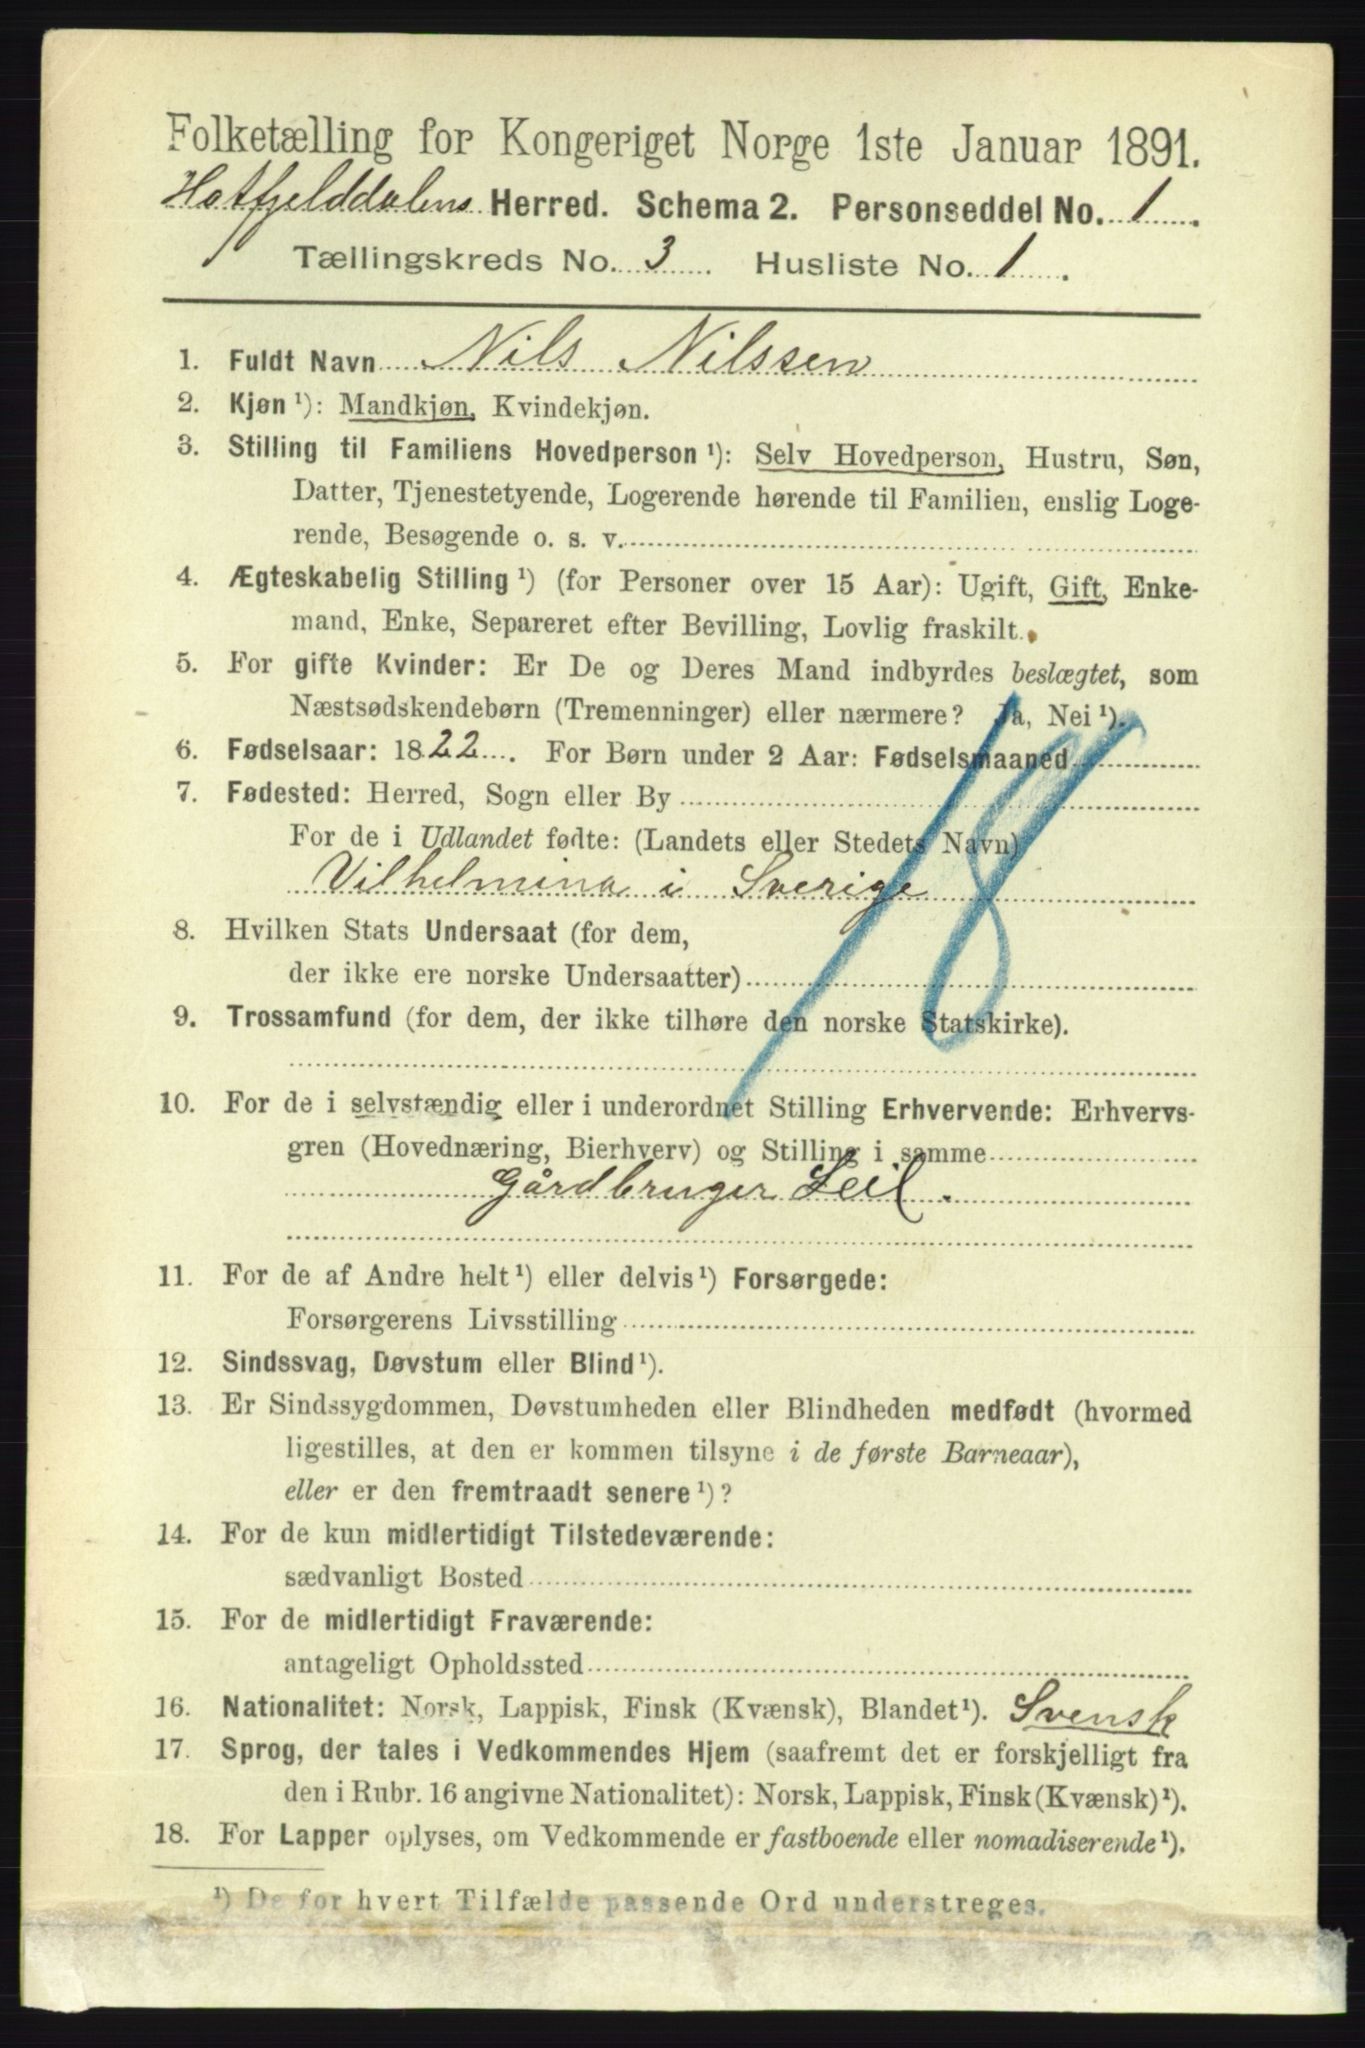 Folketælling for Kongeriget Norge 1ste Januar 1891.
Hatfjelddalens Herred. Schema 2. Personseddel No. 1.
Tællingskreds No. 3 Husliste No. 1.
1. Fuldt Navn Nils Nilssen
2. Kjøn ¹): Mandkjøn, Kvindekjøn.
3. Stilling til Familiens Hovedperson ¹): Selv Hovedperson, Hustru, Søn,
Datter, Tjenestetyende, Logerende hørende til Familien, enslig Loge-
rende, Besøgende o. s. v.
4. Ægteskabelig Stilling ¹) (for Personer over 15 Aar): Ugift, Gift, Enke-
mand, Enke, Separeret efter Bevilling, Lovlig fraskilt.
5. For gifte Kvinder: Er De og Deres Mand indbyrdes beslægtet, som
Næstsødskendebørn (Tremenninger) eller nærmere? Ja, Nei ¹).
6. Fødselsaar: 1822. For Børn under 2 Aar: Fødselsmaaned
7. Fødested: Herred, Sogn eller By
For de i Udlandet fødte: (Landets eller Stedets Navn)
Vilhelmina i Sverige
18
8. Hvilken Stats Undersaat (for dem,
der ikke ere norske Undersaatter)
9. Trossamfund (for dem, der ikke tilhøre den norske Statskirke).
10. For de i selvstændig eller i underordnet Stilling Erhvervende: Erhvervs-
gren (Hovednæring, Bierhverv) og Stilling i samme
Gårdbruger Leil.
11. For de af Andre helt ¹) eller delvis ¹) Forsørgede:
Forsørgerens Livsstilling
12. Sindssvag, Døvstum eller Blind ¹).
13. Er Sindssygdommen, Døvstumheden eller Blindheden medfødt (hvormed
ligestilles, at den er kommen tilsyne i de første Barneaar),
eller er den fremtraadt senere ¹)?
14. For de kun midlertidigt Tilstedeværende:
sædvanligt Bosted
15. For de midlertidigt Fraværende:
antageligt Opholdssted
16. Nationalitet: Norsk, Lappisk, Finsk (Kvænsk), Blandet ¹). Svensk
17. Sprog, der tales i Vedkommendes Hjem (saafremt det er forskjelligt fra
den i Rubr. 16 angivne Nationalitet): Norsk, Lappisk, Finsk (Kvænsk) ¹).
18. For Lapper oplyses, om Vedkommende er fastboende eller nomadiserende ¹).
¹) De for hvert Tilfælde passende Ord understreges.